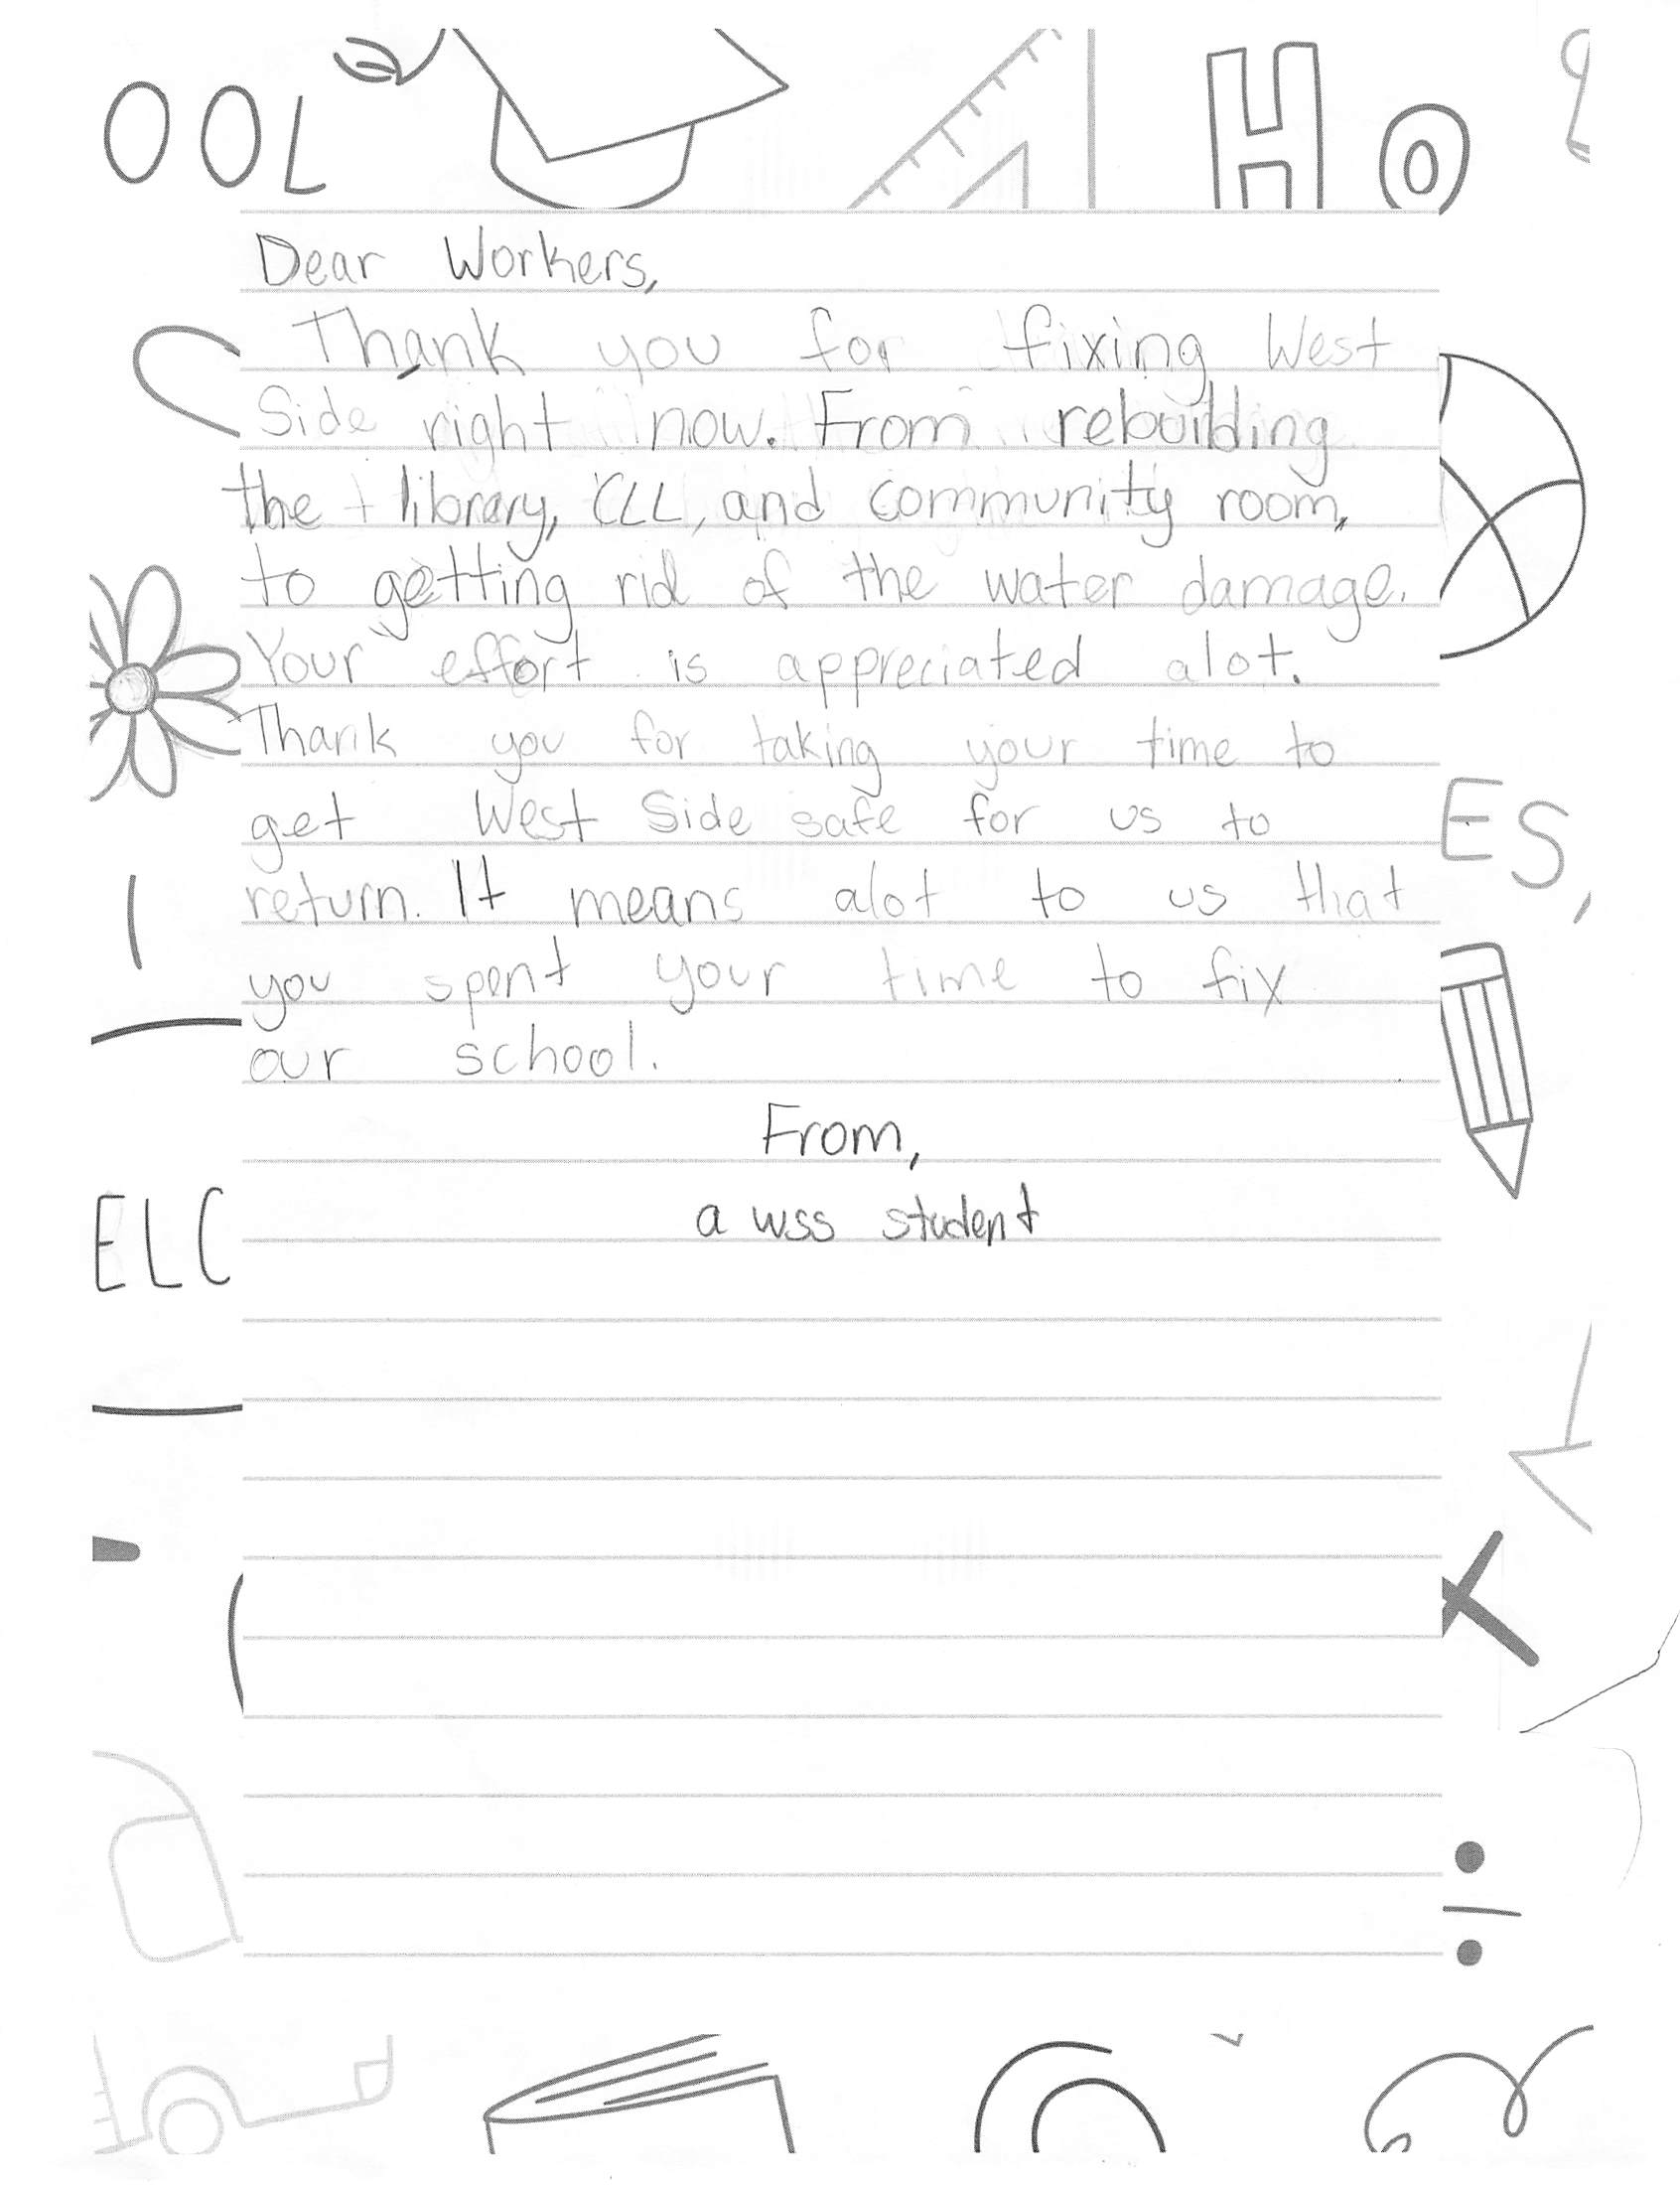 OOL
HO
Dear Workers,
Thank you for fixing West
Side right now. From rebuilding
the library, CLL, and community room,
to getting rid of the water damage.
Your effort is appreciated alot.
Thank you for taking your time to
get West Side safe for us to
ES,
return. It means alot to us that
you spent your time to fix
our school.
From,
a wss student
ELC